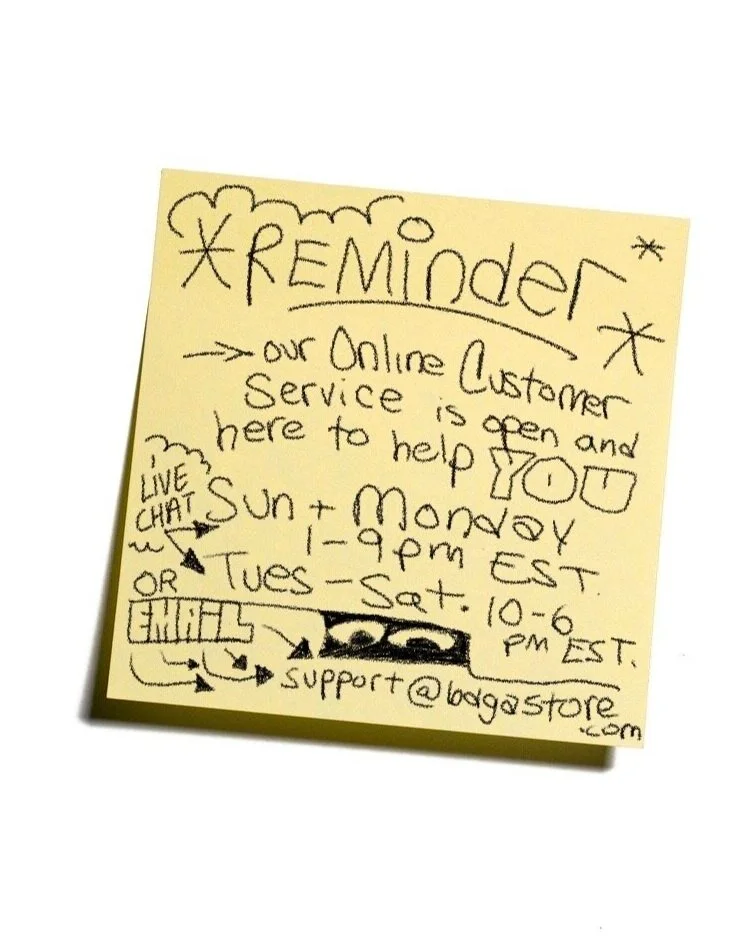 *REMinder*
→ our Online Customer
Service is open and
here to help YOU
LIVE
CHAT
Sun + Monday
1-9pm EST
Tues - Sat. 10-6
pm EST.
OR
EMAIL
support@bdgastore
.com